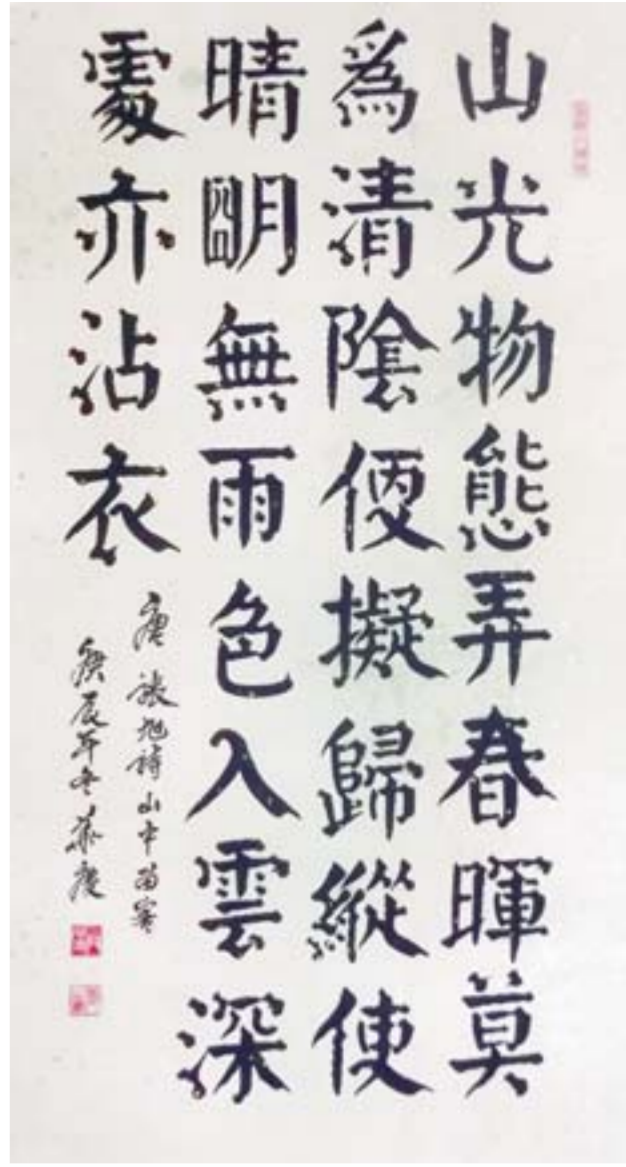 山光物態弄春暉莫
為清陰便擬歸縱使
晴明無雨色入雲深
處亦沾衣
唐張旭詩山中留客
庚辰年冬